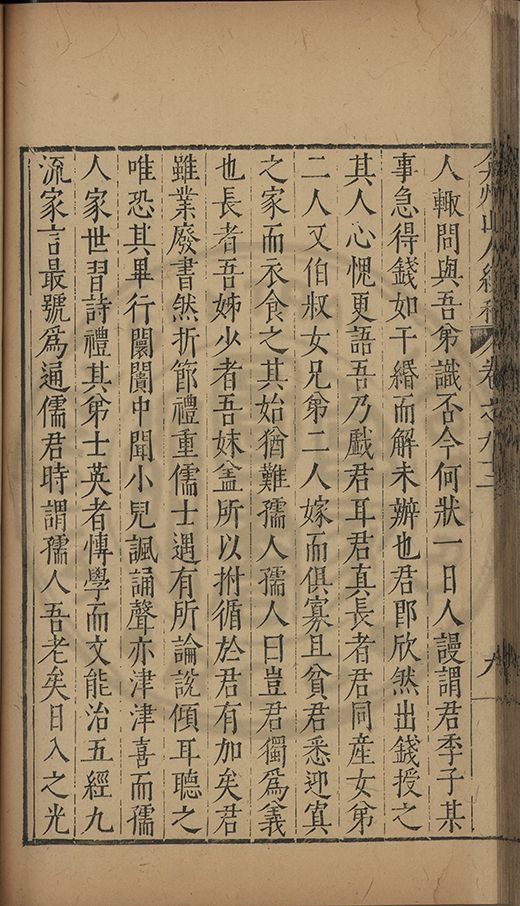 弇州山人續稿 卷之九三 九
人輙問與吾弟識否今何狀一日人謾謂君季子某
事急得錢如干緡而解未辦也君即欣然出錢授之
其人心愧更語吾乃戲君耳君真長者君同産女弟
二人又伯叔女兄弟二人嫁而俱寡且貧君悉迎寘
之家而衣食之其始猶難孺人孺人曰豈君獨爲義
也長者吾姊少者吾妹盍所以拊循於君有加矣君
雖業廢書然折節禮重儒士遇有所論說傾耳聽之
唯恐其畢行闤闠中聞小兒諷誦聲亦津津喜而孺
人家世習詩禮其弟士英者愽學而文能治五經九
流家言最號爲通儒君時謂孺人吾老矣日入之光